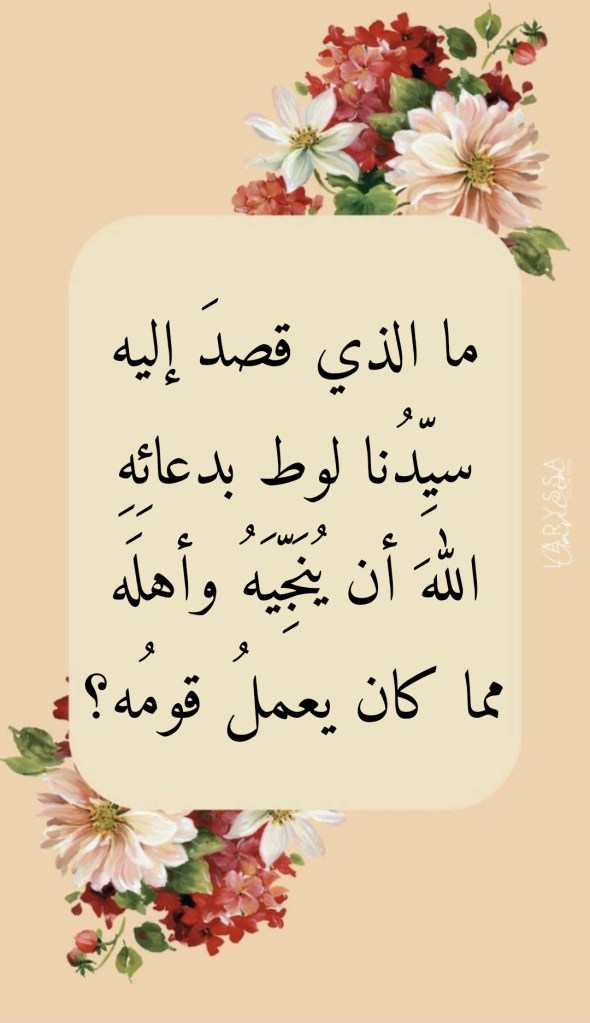 ما الذي قصدَ إليه
سيِّدُنا لوط بدعائِهِ
اللهَ أن يُنَجِّيَهُ وأهلَه
مما كان يعملُ قومُه؟
LARYSSA